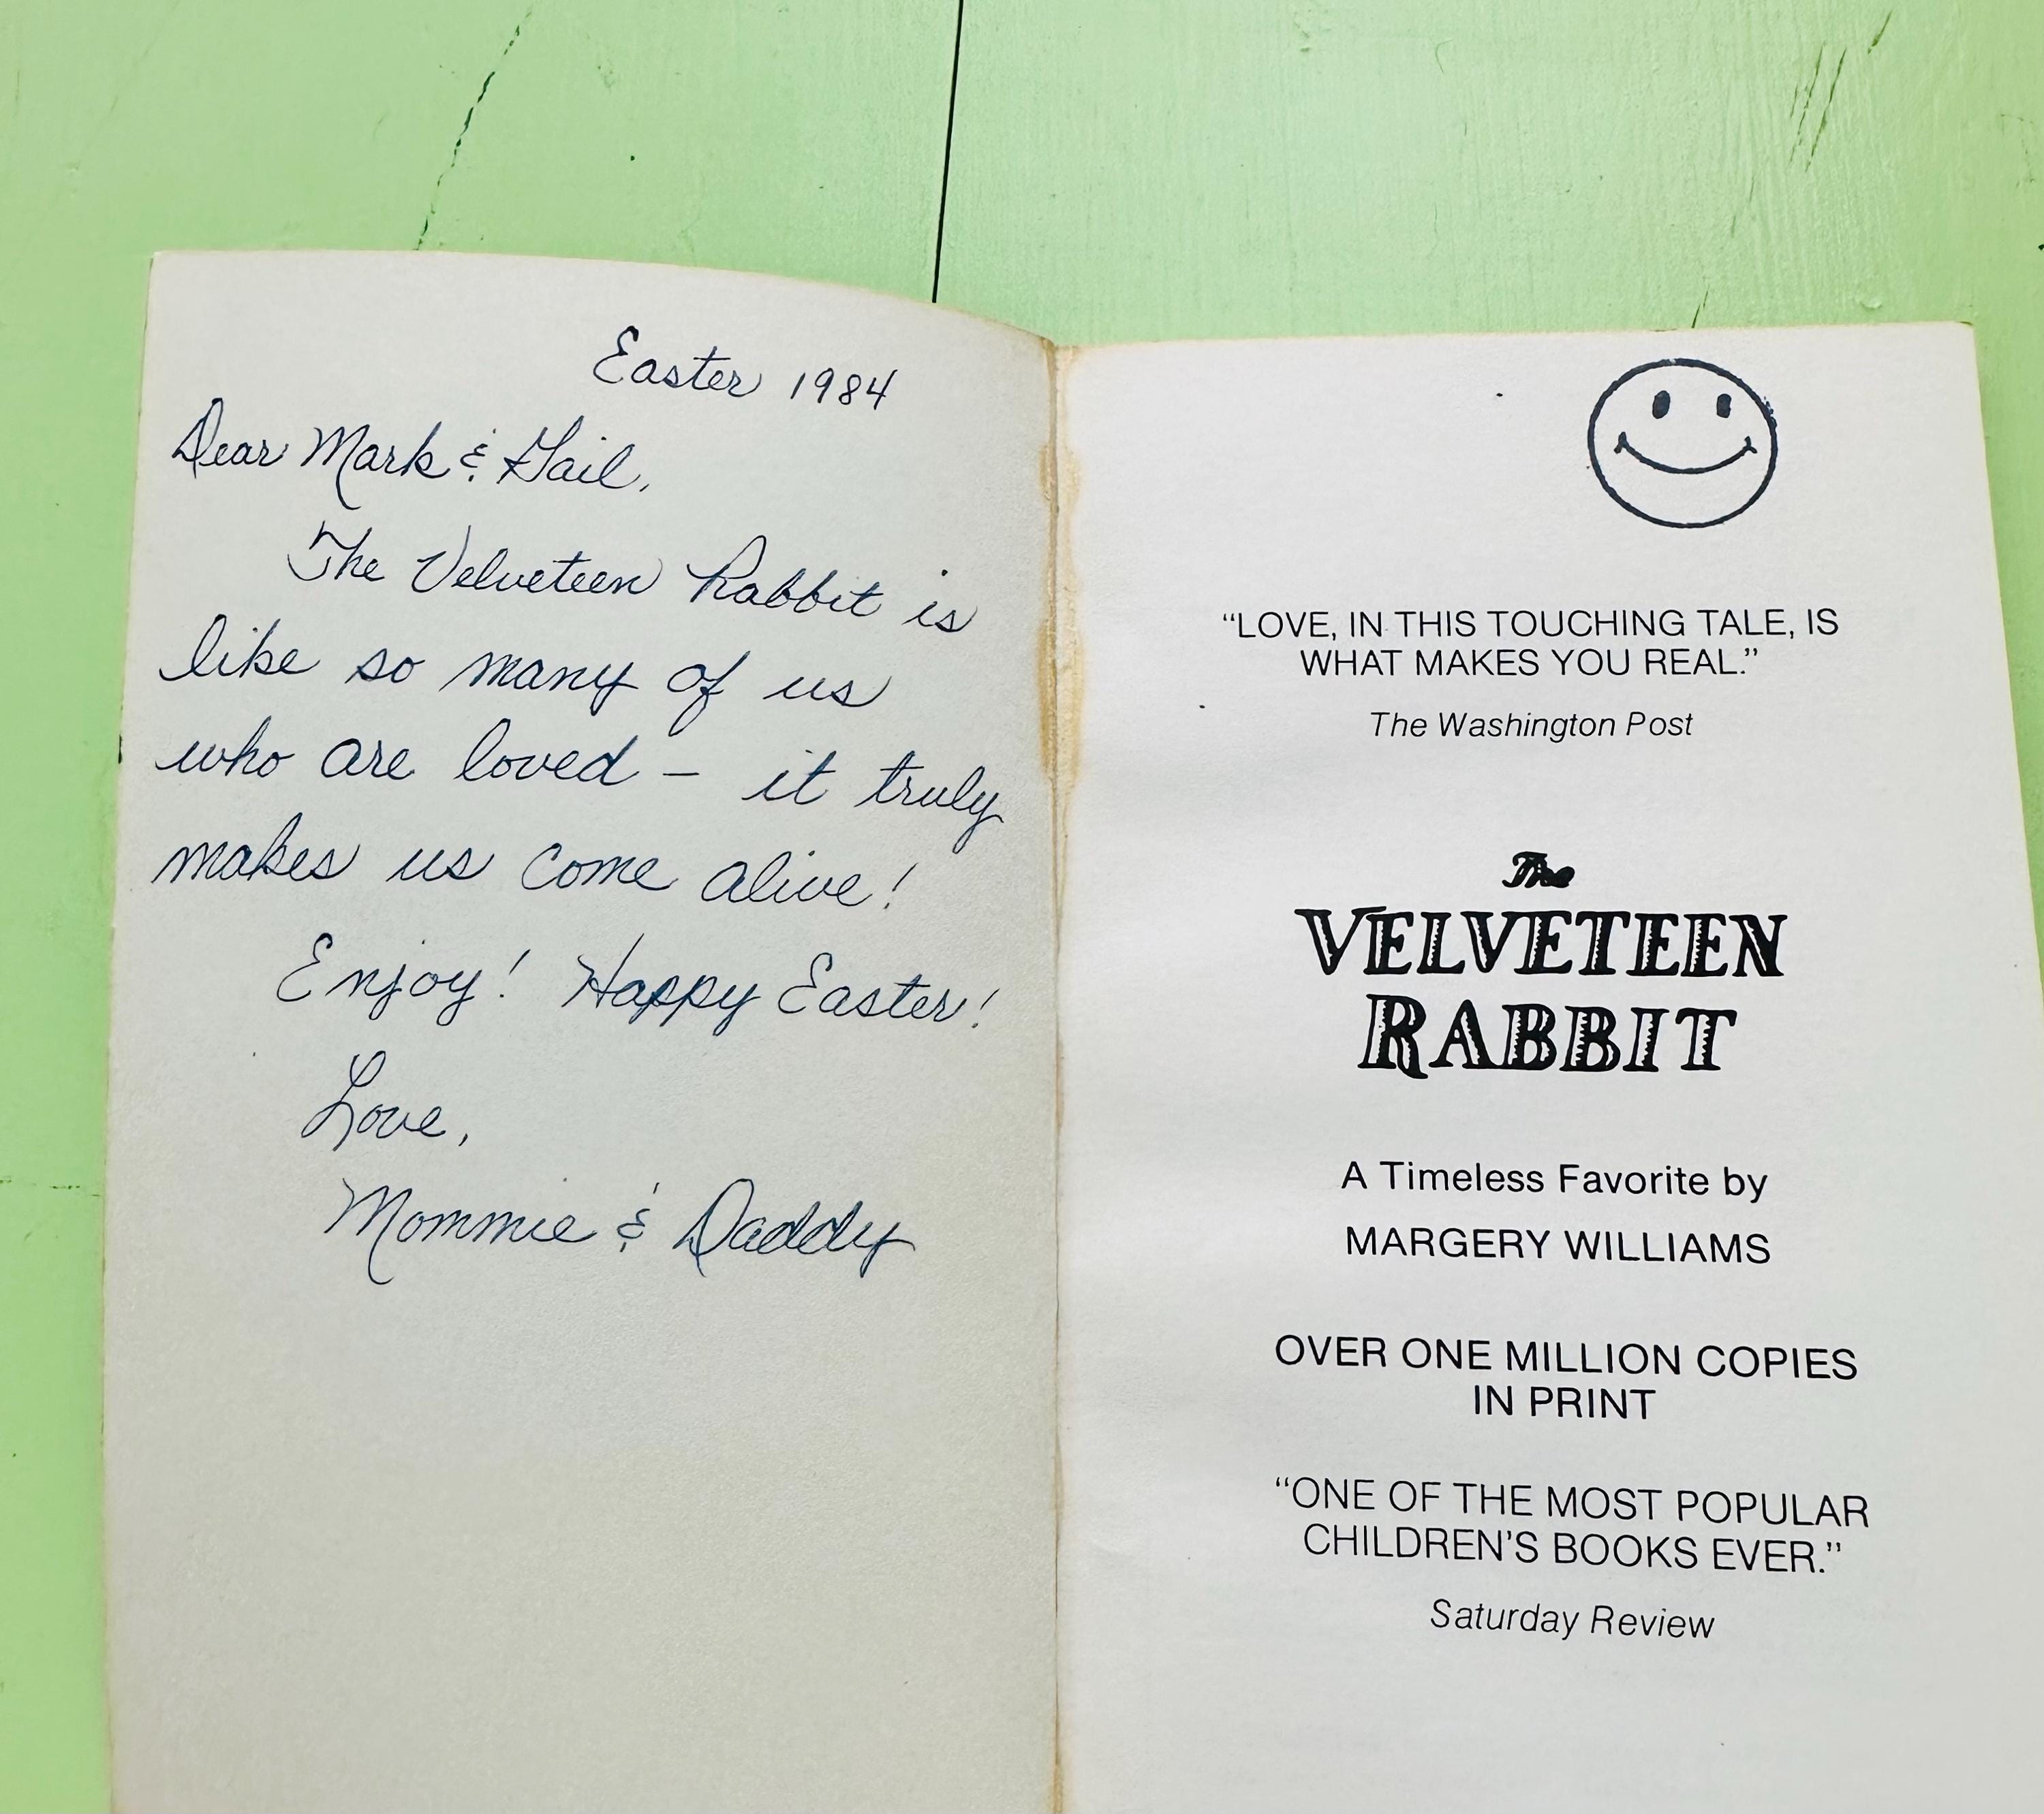 Easter 1984
Dear Mark & Gail,
The Velveteen Rabbit is
like so many of us
who are loved – it truly
makes us come alive!
Enjoy! Happy Easter!
Love,
Mommie & Daddy
“LOVE, IN THIS TOUCHING TALE, IS
WHAT MAKES YOU REAL.”
The Washington Post
The
VELVETEEN
RABBIT
A Timeless Favorite by
MARGERY WILLIAMS
OVER ONE MILLION COPIES
IN PRINT
“ONE OF THE MOST POPULAR
CHILDREN’S BOOKS EVER.”
Saturday Review